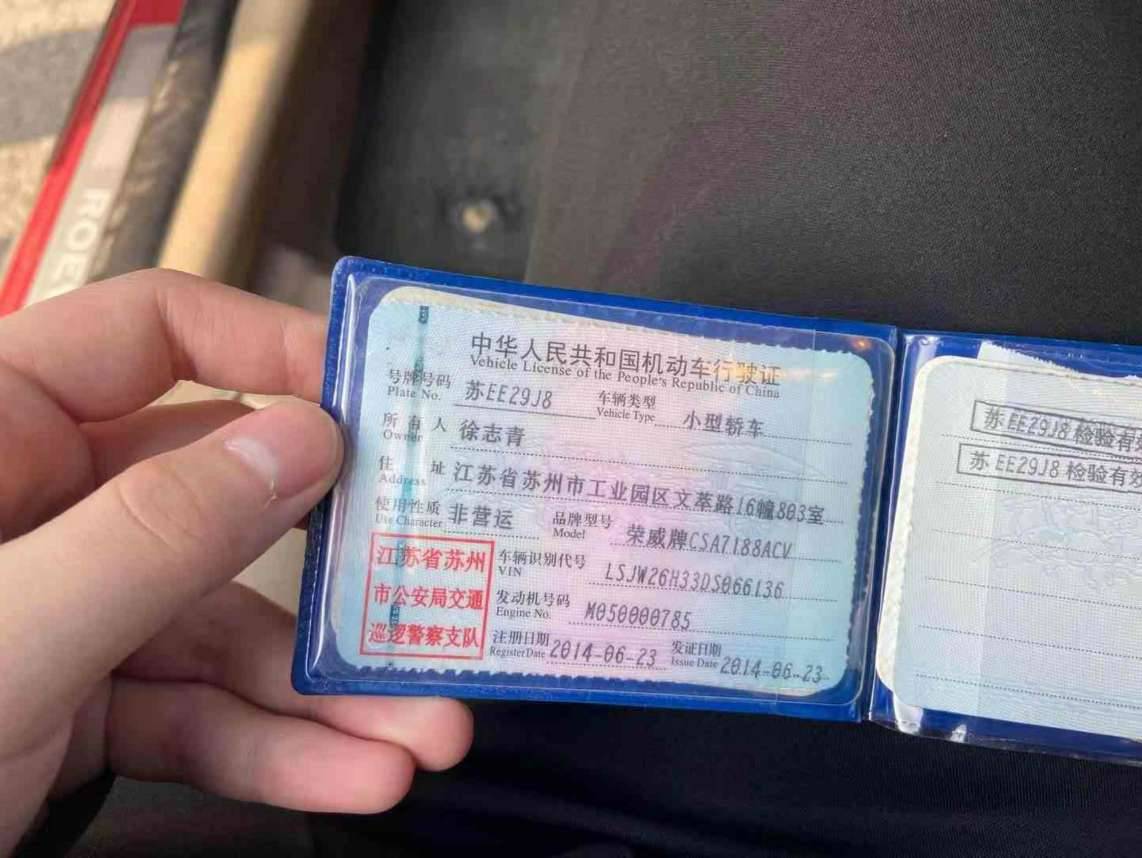 ROE
中华人民共和国机动车行驶证
Vehicle License of the People's Republic of China
号牌号码 苏EE29J8 车辆类型 小型轿车
Plate No. Vehicle Type
所有人 徐志青
Owner
住址 江苏省苏州市工业园区文萃路16幢803室
Address
使用性质 非营运 品牌型号 荣威牌CSA7188ACV
Use Character Model
江苏省苏州
市公安局交通
巡逻警察支队
车辆识别代号 LSJW26H33DS066136
VIN
发动机号码 M050000785
Engine No.
注册日期 2014-06-23 发证日期 2014-06-23
Register Date Issue Date
苏EE29J8检验有
苏EE29J8检验有